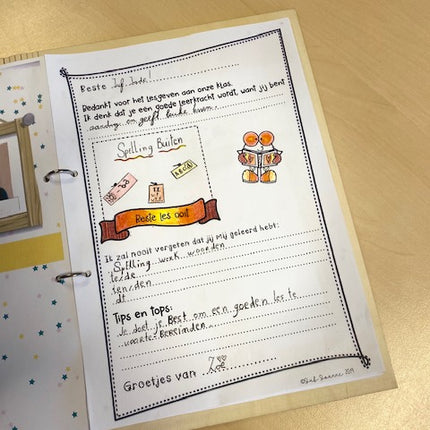 Beste Juf Jade!
Bedankt voor het lesgeven aan onze klas.
Ik denk dat je een goede leerkracht wordt, want jij bent
aardig en geeft leuke
Spelling Buiten
Beste les ooit
Ik zal nooit vergeten dat jij mij geleerd hebt:
Spelling werk woorden
te/de
ten/den
dt
Tips en tops:
Je doet je Best om een goeden les te
Groetjes van
2019